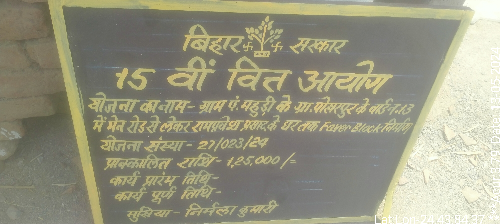 बिहार सरकार
15 वीं वित आयोग
योजना का नाम- ग्राम पं. महुड़ी के ग्रा. पोसरपुर के वार्ड न.-13
में मेन रोड से लेकर रामप्रवेश प्रसाद के घर तक Paver Block निर्माण
योजना संख्या- 27/023/24
प्राक्कलित राशि- 1,25,000/=
कार्य प्रारंभ तिथि-
कार्य पूर्ण तिथि-
मुखिया- निर्मला कुमारी